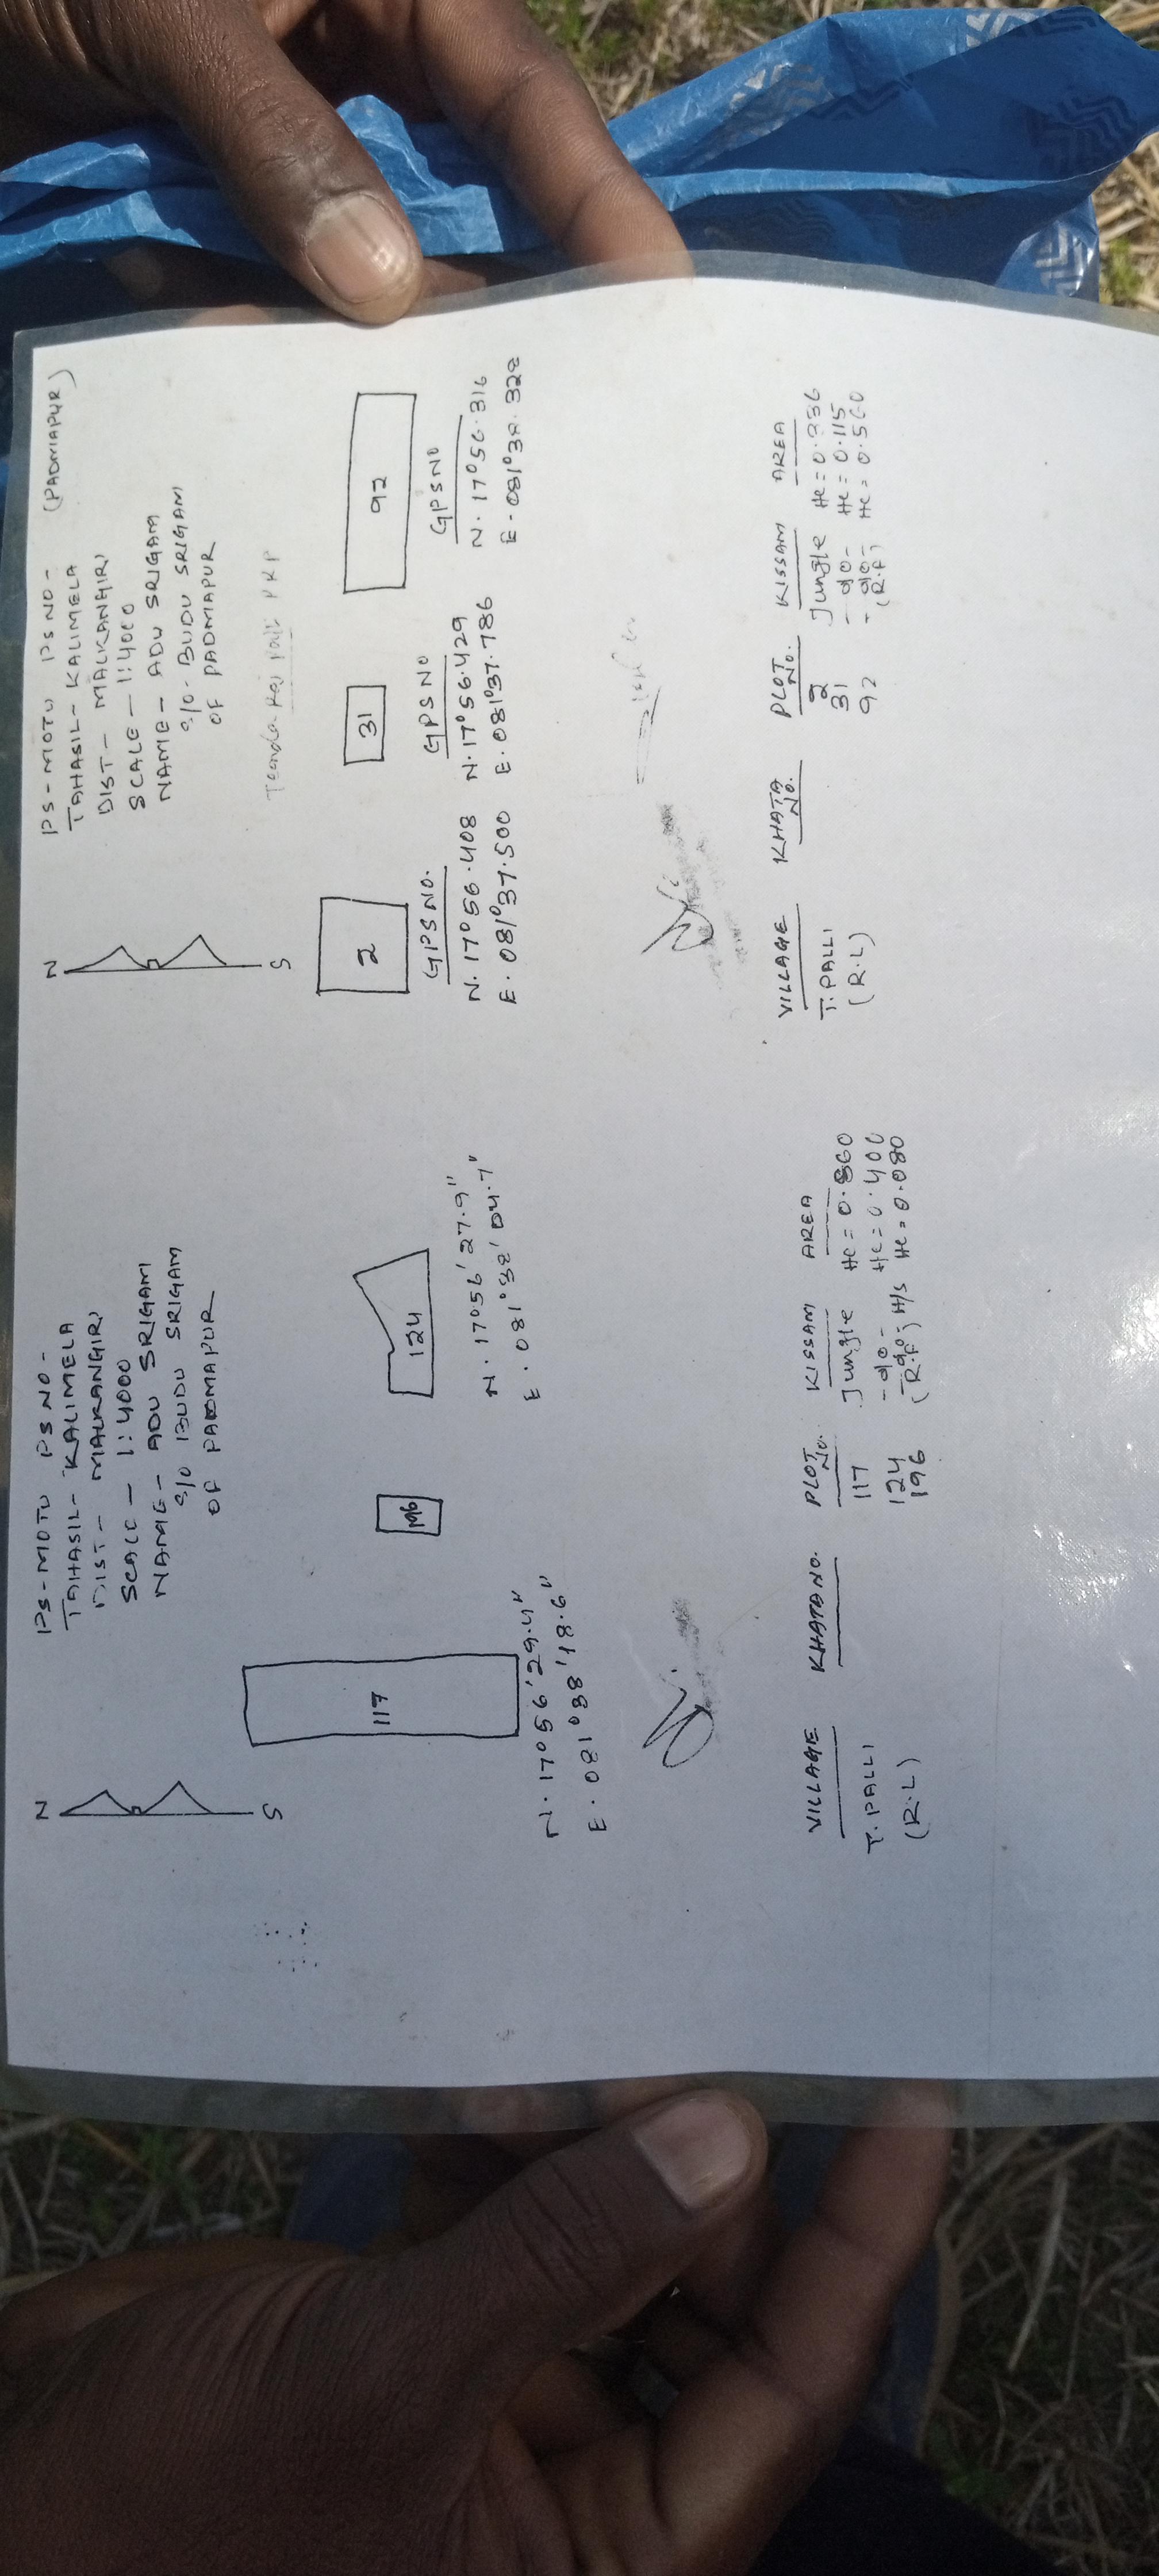 N
S
PS-MOTU PS NO-
TAHASIL- KALIMELA
DIST- MALKANGIRI
SCALE - 1:4000
NAME- ADU SRIGAM
S/O BUDU SRIGAM
OF PADMAPUR
117
196
124
N. 17°56'29.4"
E. 081°38'18.6"
N. 17°56'27.9"
E. 081°38'04.7"
VILLAGE KHATA NO. PLOT NO. KISSAM AREA
T. PALLI 117 Jungle Hc = 0.860
(R.L) 124 -do- Hc = 0.400
196 -do- H/S Hc = 0.080
(R.F)
N
S
PS-MOTU PS NO- (PADMAPUR)
TAHASIL- KALIMELA
DIST- MALKANGIRI
SCALE - 1:4000
NAME- ADU SRIGAM
S/O- BUDU SRIGAM
OF PADMAPUR
2
31
92
GPS NO.
N. 17°56.408
E. 081°37.500
GPS NO
N. 17°56.429
E. 081°37.786
GPS NO
N. 17°56.316
E. 081°38.328
VILLAGE KHATA NO. PLOT NO. KISSAM AREA
T. PALLI 2 Jungle Hc = 0.336
(R.L) 31 -do- Hc = 0.115
92 -do- Hc = 0.560
(R.F)